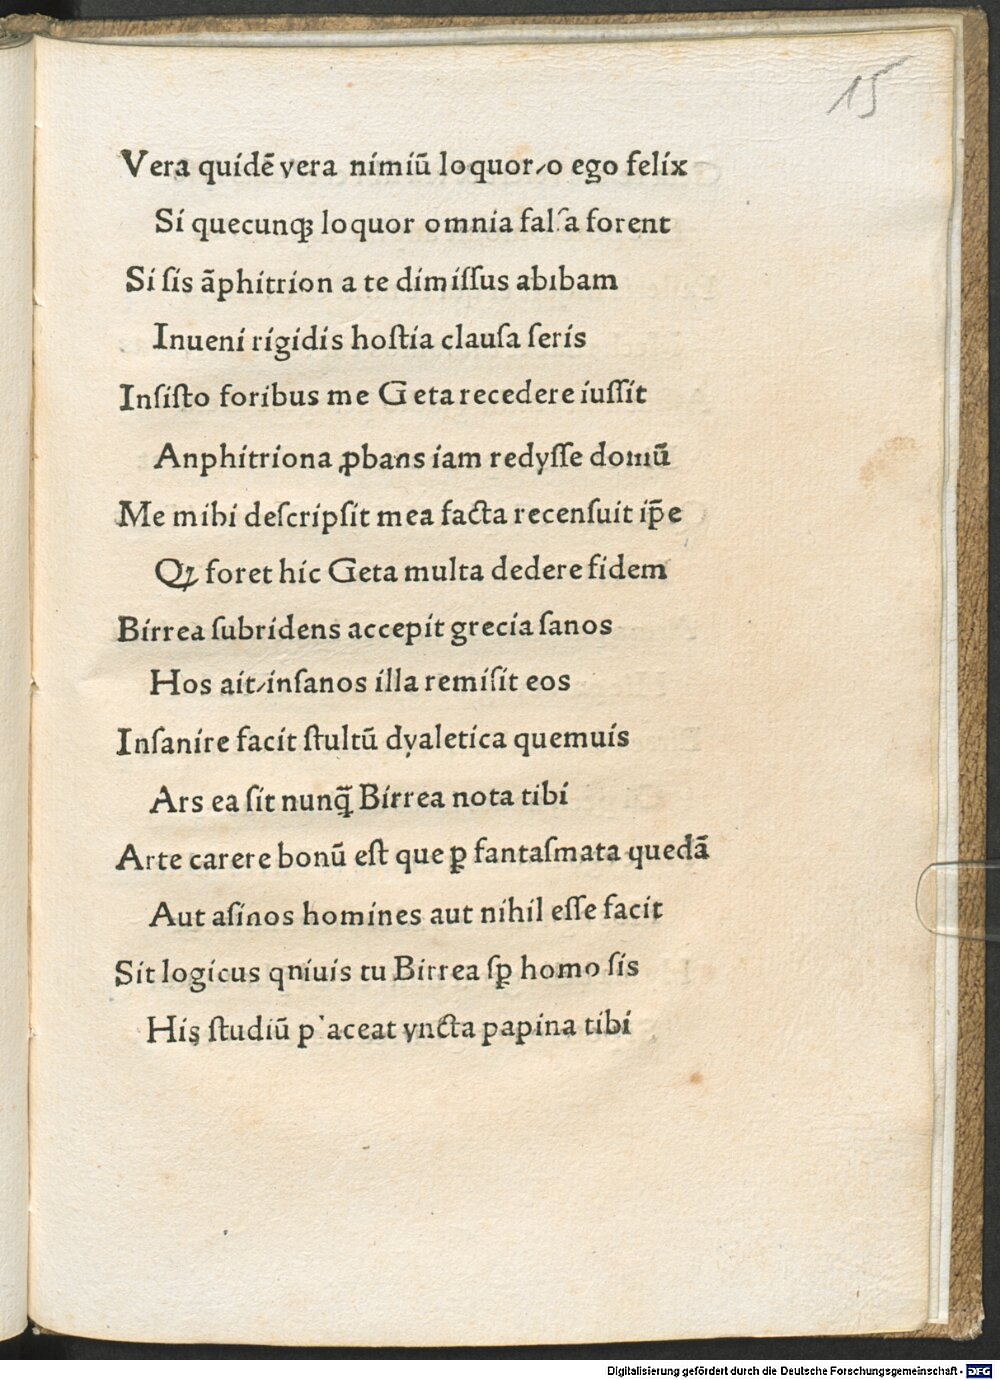 15
Vera quidē vera nimiū loquor⸝o ego felix
Si quecunqꝫ loquor omnia falſa forent
Si ſis āphitrion a te dimiſſus abibam
Inueni rigidis hoſtia clauſa ſeris
Inſiſto foribus me Geta recedere iuſſit
Anphitriona ꝓbans iam redyſſe domū
Me mihi deſcripſit mea facta recenſuit ip̄e
Qꝫ foret hic Geta multa dedere fidem
Birrea ſubridens accepit grecia ſanos
Hos ait⸝inſanos illa remiſit eos
Inſanire facit ſtultū dyaletica quemuis
Ars ea ſit nunq̄ Birrea nota tibi
Arte carere bonū eſt que ꝑ fantaſmata quedā
Aut aſinos homines aut nihil eſſe facit
Sit logicus qniuis tu Birrea ſꝑ homo ſis
His ſtudiū placeat yncta papina tibi
Digitalisierung gefördert durch die Deutsche Forschungsgemeinschaft - DFG